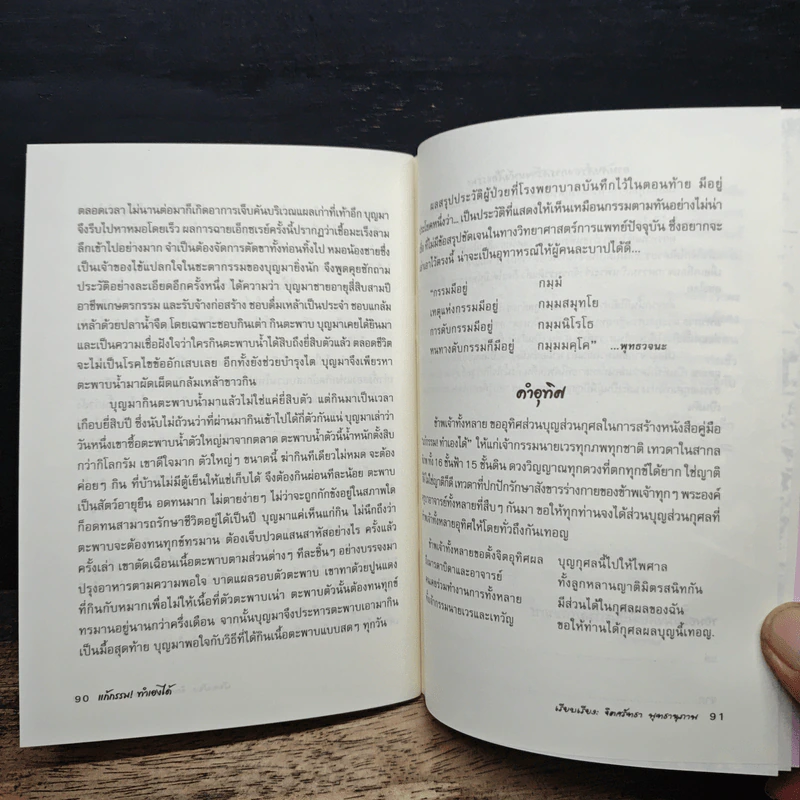 ตลอดเวลา ไม่นานต่อมาก็เกิดอาการเจ็บคันบริเวณแผลเก่าที่เท้าอีก บุญมา
จึงรีบไปหาหมอโดยเร็ว ผลการฉายเอ็กซเรย์ครั้งนี้ปรากฏว่าเชื้อมะเร็งลาม
ลึกเข้าไปอย่างมาก จำเป็นต้องจัดการตัดขาทั้งท่อนทิ้งไป หมอน้องชายซึ่ง
เป็นเจ้าของไข้แปลกใจในชะตากรรมของบุญมายิ่งนัก จึงพูดคุยซักถาม
ประวัติอย่างละเอียดอีกครั้งหนึ่ง ได้ความว่า บุญมาชายอายุสี่สิบสามปี
อาชีพเกษตรกรรม และรับจ้างก่อสร้าง ชอบดื่มเหล้าเป็นประจำ ชอบแกล้ม
เหล้าด้วยปลาน้ำจืด โดยเฉพาะชอบกินเต่า กินตะพาบ บุญมาเคยได้ยินมา
และเป็นความเชื่อฝังใจว่าใครกินตะพาบน้ำได้สิบถึงยี่สิบตัวแล้ว ตลอดชีวิต
จะไม่เป็นโรคไขข้ออักเสบเลย อีกทั้งยังช่วยบำรุงไต บุญมาจึงเพียรหา
ตะพาบน้ำมาผัดเผ็ดแกล้มเหล้าขาวกิน
บุญมากินตะพาบน้ำมาแล้วไม่ใช่แค่ยี่สิบตัว แต่กินมาเป็นเวลา
เกือบยี่สิบปี ซึ่งนับไม่ถ้วนว่าที่ผ่านมากินเข้าไปได้กี่ตัวกันแน่ บุญมาเล่าว่า
วันหนึ่งเขาซื้อตะพาบน้ำตัวใหญ่มาจากตลาด ตะพาบน้ำตัวนี้น้ำหนักตั้งสิบ
กว่ากิโลกรัม เขาดีใจมาก ตัวใหญ่ๆ ขนาดนี้ ฆ่ากินทีเดียวไม่หมด จะต้อง
ค่อยๆ กิน ที่บ้านไม่มีตู้เย็นให้แช่เก็บได้ จึงต้องกินผ่อนทีละน้อย ตะพาบ
เป็นสัตว์อายุยืน อดทนมาก ไม่ตายง่ายๆ ไม่ว่าจะถูกกักขังอยู่ในสภาพใด
ก็อดทนสามารถรักษาชีวิตอยู่ได้เป็นปี บุญมาแค่เห็นแก่กิน ไม่นึกถึงว่า
ตะพาบจะต้องทนทุกข์ทรมาน ต้องเจ็บปวดแสนสาหัสอย่างไร ครั้งแล้ว
ครั้งเล่า เขาตัดเฉือนเนื้อตะพาบตามส่วนต่างๆ ทีละชิ้นๆ อย่างบรรจงมา
ปรุงอาหารตามความพอใจ บาดแผลรอบตัวตะพาบ เขาทาด้วยปูนแดง
ที่กินกับหมากเพื่อไม่ให้เนื้อที่ตัวตะพาบเน่า ตะพาบตัวนั้นต้องทนทุกข์
ทรมานอยู่นานกว่าครึ่งเดือน จากนั้นบุญมาจึงประหารตะพาบเอามากิน
เป็นมื้อสุดท้าย บุญมาพอใจกับวิธีที่ได้กินเนื้อตะพาบแบบสดๆ ทุกวัน
90 แก้กรรม! ทำเองได้
ผลสรุปประวัติผู้ป่วยที่โรงพยาบาลบันทึกไว้ในตอนท้าย มีอยู่
ประโยคหนึ่งว่า... เป็นประวัติที่แสดงให้เห็นเหมือนกรรมตามทันอย่างไม่น่า
ที่ไม่มีข้อสรุปชัดเจนในทางวิทยาศาสตร์การแพทย์ปัจจุบัน ซึ่งอยากจะ
ไว้ตรงนี้ น่าจะเป็นอุทาหรณ์ให้ผู้คนละบาปได้ดี...
"กรรมมีอยู่ กมฺมํ
เหตุแห่งกรรมมีอยู่ กมฺมสมุทโย
การดับกรรมมีอยู่ กมฺมนิโรโธ
หนทางดับกรรมก็มีอยู่ กมฺมมคฺโค" ...พุทธวจนะ
คำอุทิศ
ข้าพเจ้าทั้งหลาย ขออุทิศส่วนบุญส่วนกุศลในการสร้างหนังสือคู่มือ
ทำเองได้" ให้แก่เจ้ากรรมนายเวรทุกภพทุกชาติ เทวดาในสากล
ทั้ง 16 ชั้นฟ้า 15 ชั้นดิน ดวงวิญญาณทุกดวงที่ตกทุกข์ได้ยาก ใช่ญาติ
ไม่ใช่ญาติก็ดี เทวดาที่ปกปักรักษาสังขารร่างกายของข้าพเจ้าทุกๆ พระองค์
อาจารย์ทั้งหลายที่สืบๆ กันมา ขอให้ทุกท่านจงได้ส่วนบุญส่วนกุศลที่
ข้าพเจ้าทั้งหลายอุทิศให้โดยทั่วถึงกันเทอญ
ข้าพเจ้าทั้งหลายขอตั้งจิตอุทิศผล บุญกุศลนี้ไปให้ไพศาล
มารดาบิดาและอาจารย์ ทั้งลูกหลานญาติมิตรสนิทกัน
ร่วมทำงานการทั้งหลาย มีส่วนได้ในกุศลผลของฉัน
เจ้ากรรมนายเวรและเทวัญ ขอให้ท่านได้กุศลผลบุญนี้เทอญ.
เรียบเรียง: จิตศรัทธา พุทธานุภาพ 91